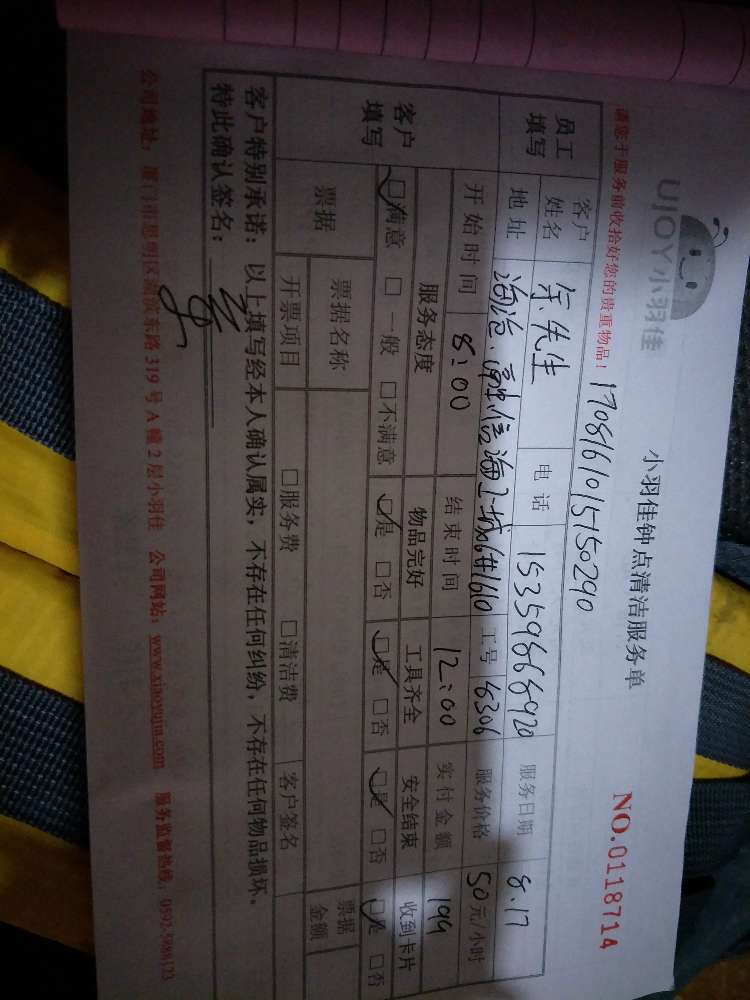 UJOY小羽佳
小羽佳钟点清洁服务单
NO.0118714
请您于服务前收拾好您的贵重物品！
1708161015150290
员工填写
客户姓名 余先生 电话 15359868920 服务日期 8.17
地址 海沧.融信海上城6#1610 工号 8306 服务价格 50元/小时
开始时间 8:00 结束时间 12:00 实付金额 199
客户填写
服务态度 物品完好 工具齐全 安全结束 收到卡片
☑满意 □一般 □不满意 ☑是 □否 ☑是 □否 ☑是 □否 ☑是 □否
票据 票据名称 票据金额
开票项目 □服务费 □清洁费 客户签名
客户特别承诺：以上填写经本人确认属实，不存在任何纠纷，不存在任何物品损坏。
特此确认签名：
公司地址：厦门市思明区湖滨东路319号A幢2层小羽佳 公司网站：www.xiaoyujia.com 服务监督热线：0592-5888123